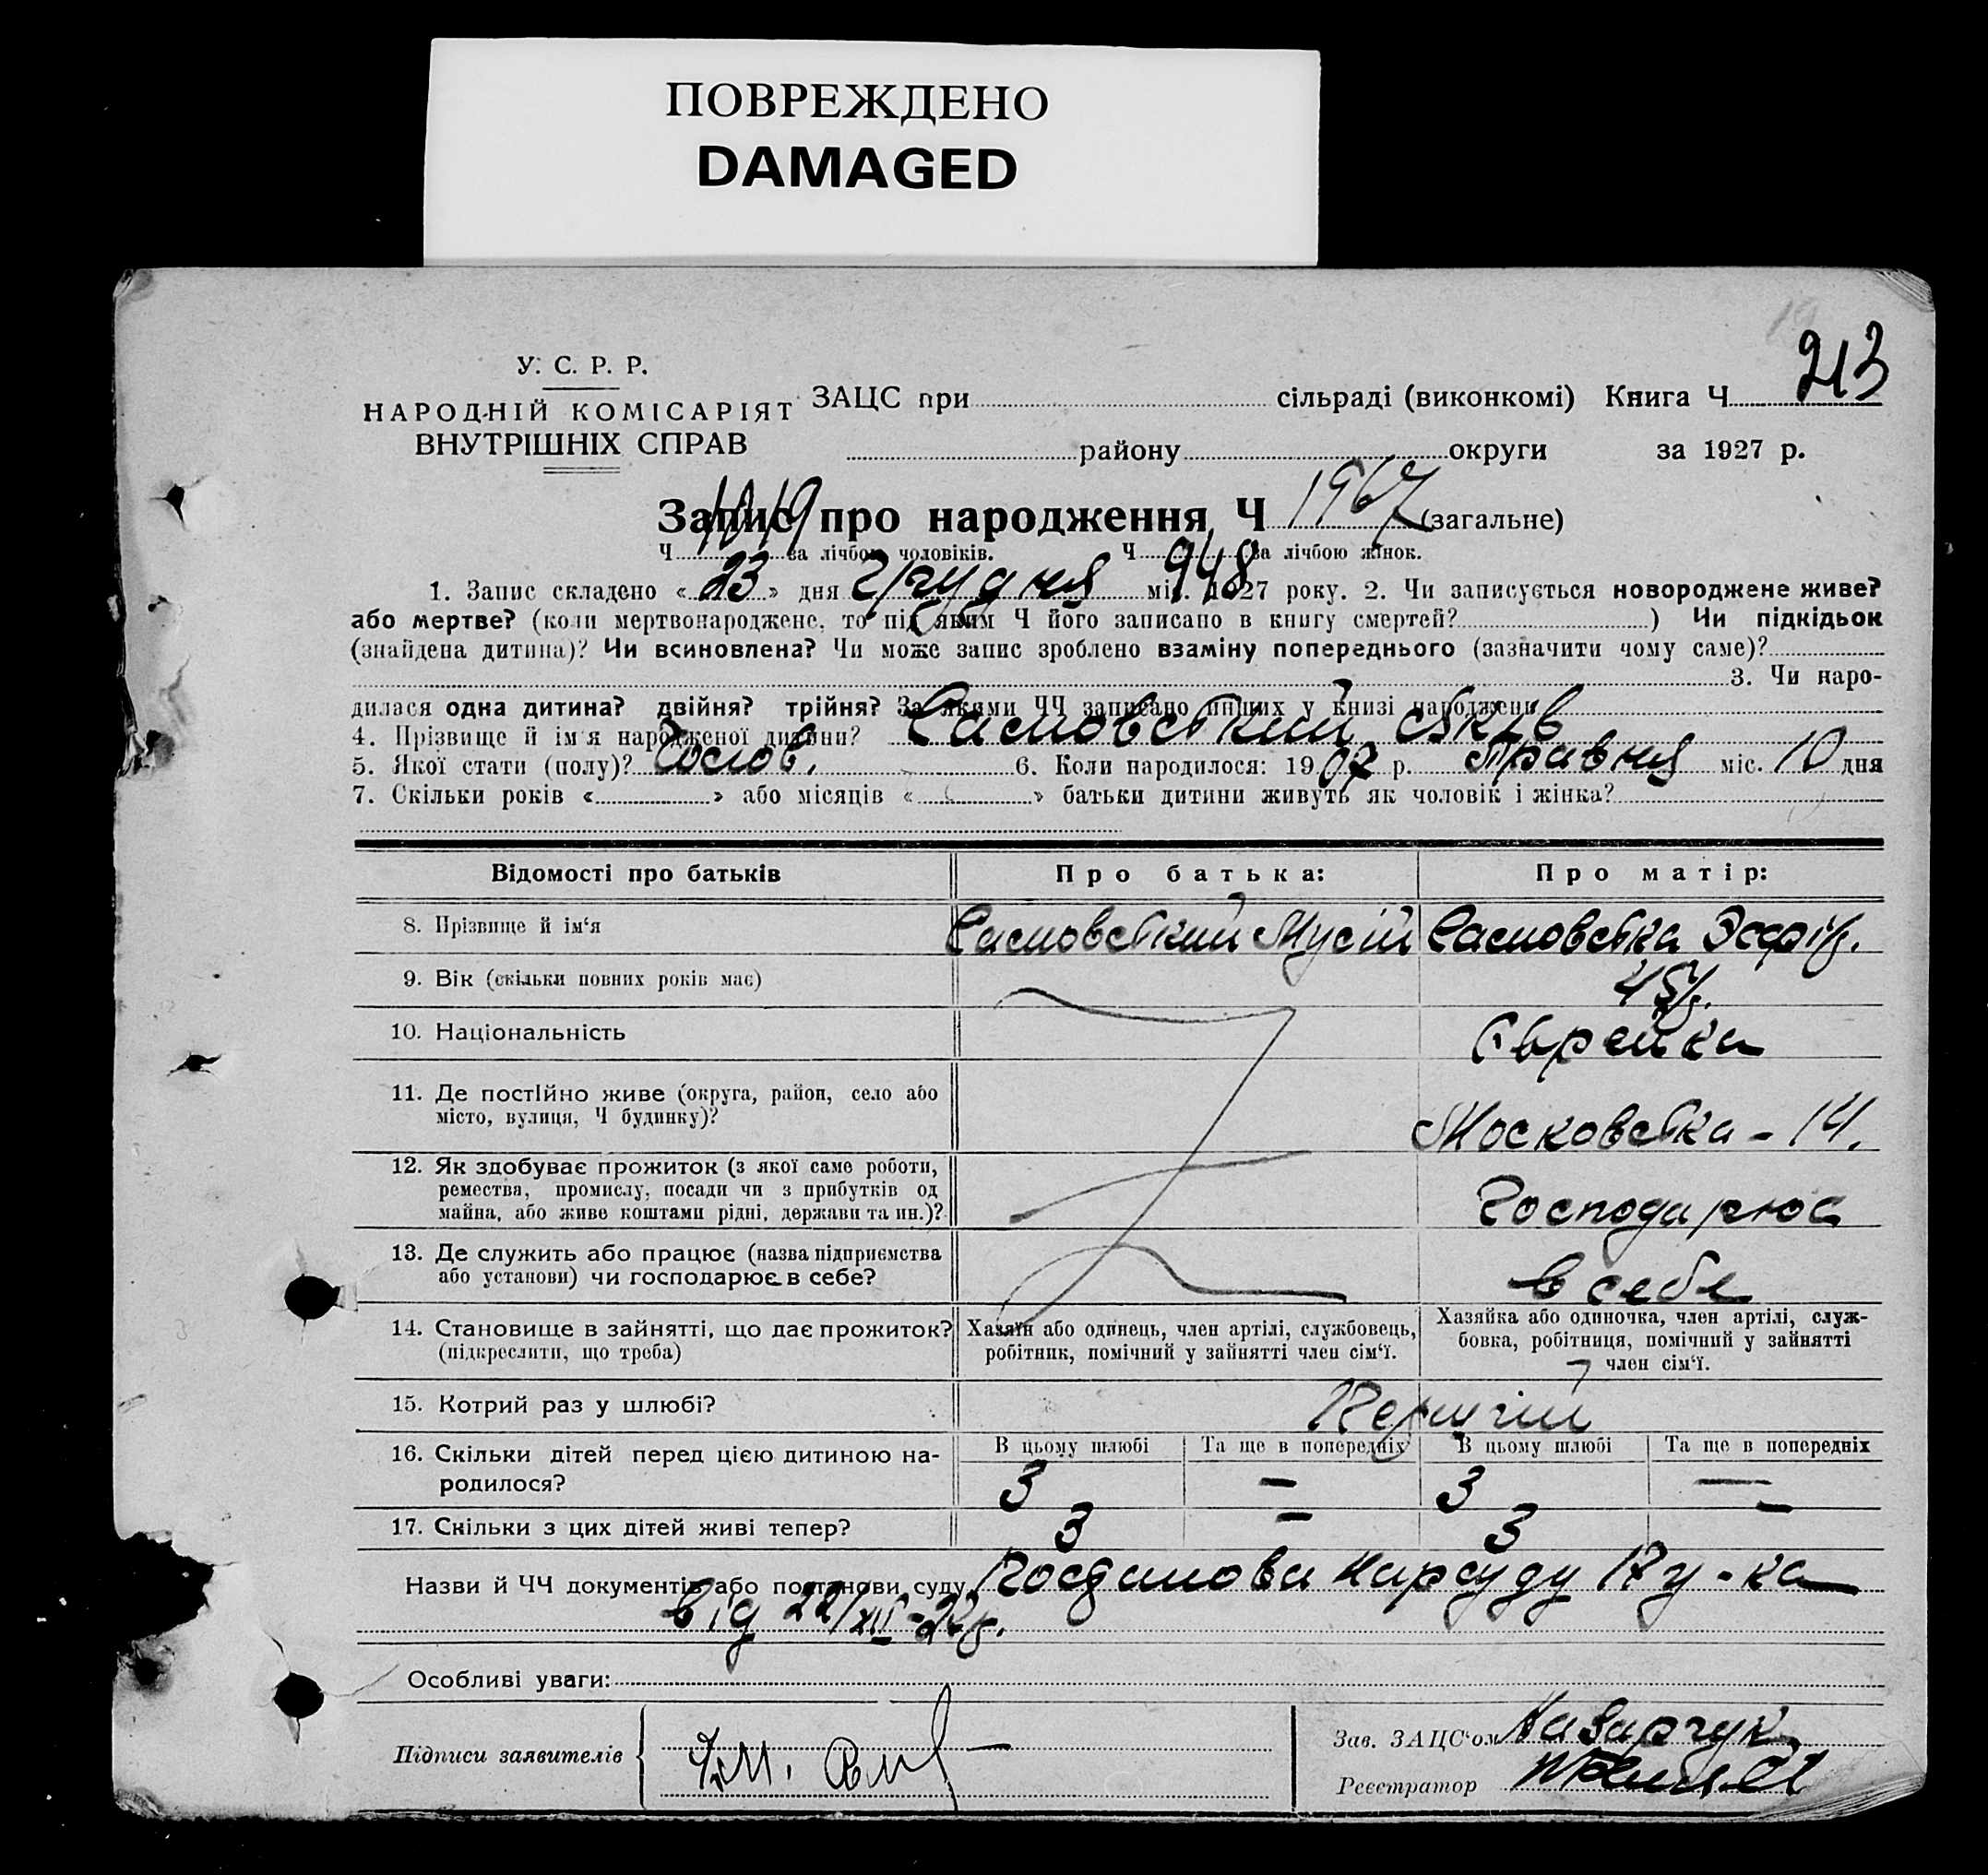 ПОВРЕЖДЕНО
DAMAGED
213
У. С. Р. Р.
НАРОДНІЙ КОМІСАРІЯТ
ВНУТРІШНІХ СПРАВ
ЗАЦС при сільраді (виконкомі) Книга Ч
району округи за 1927 р.
Запис про народження Ч 1967 (загальне)
Ч 1019 за лічбою чоловіків. Ч 948 за лічбою жінок.
1. Запис складено « 23 » дня Грудня міс. 1927 року. 2. Чи записується новороджене живе?
або мертве? (коли мертвонароджене, то під яким Ч його записано в книгу смертей? ) Чи підкідьок
(знайдена дитина)? Чи всиновлена? Чи може запис зроблено взаміну попереднього (зазначити чому саме)?
3. Чи наро-
дилася одна дитина? двійня? трійня? За якими ЧЧ записано инших у книзі народжень
4. Прізвище й ім'я народженої дитини? Сасновський Яків
5. Якої стати (полу)? Чолов. 6. Коли народилося: 1907 р. Травня міс. 10 дня
7. Скільки років « » або місяців « » батьки дитини живуть як чоловік і жінка?
Відомості про батьків Про батька: Про матір:
8. Прізвище й ім'я Сасновський Мусій Сасновська Эсфір.
9. Вік (скільки повних років має) 45
10. Національність Єврейка
11. Де постійно живе (округа, район, село або
місто, вулиця, Ч будинку)? Московська - 14.
12. Як здобуває прожиток (з якої саме роботи,
ремества, промислу, посади чи з прибутків од
майна, або живе коштами рідні, держави та ин.)? Господарює
13. Де служить або працює (назва підприємства
або установи) чи господарює в себе? в себе
14. Становище в зайнятті, що дає прожиток?
(підкреслити, що треба)
Хазяїн або одинець, член артілі, службовець,
робітник, помічний у зайнятті член сім'ї.
Хазяйка або одиночка, член артілі, служ-
бовка, робітниця, помічний у зайнятті
член сім'ї.
15. Котрий раз у шлюбі? Перший
16. Скільки дітей перед цією дитиною на-
родилося?
В цьому шлюбі Та ще в попередніх В цьому шлюбі Та ще в попередніх
3 — 3 —
17. Скільки з цих дітей живі тепер? 3 — 3 —
Назви й ЧЧ документів або постанови суду Постанова Нарсуду
від 22/XII-27р.
Особливі уваги:
Підписи заявителів
Зав. ЗАЦС'ом Назарчук
Реєстратор